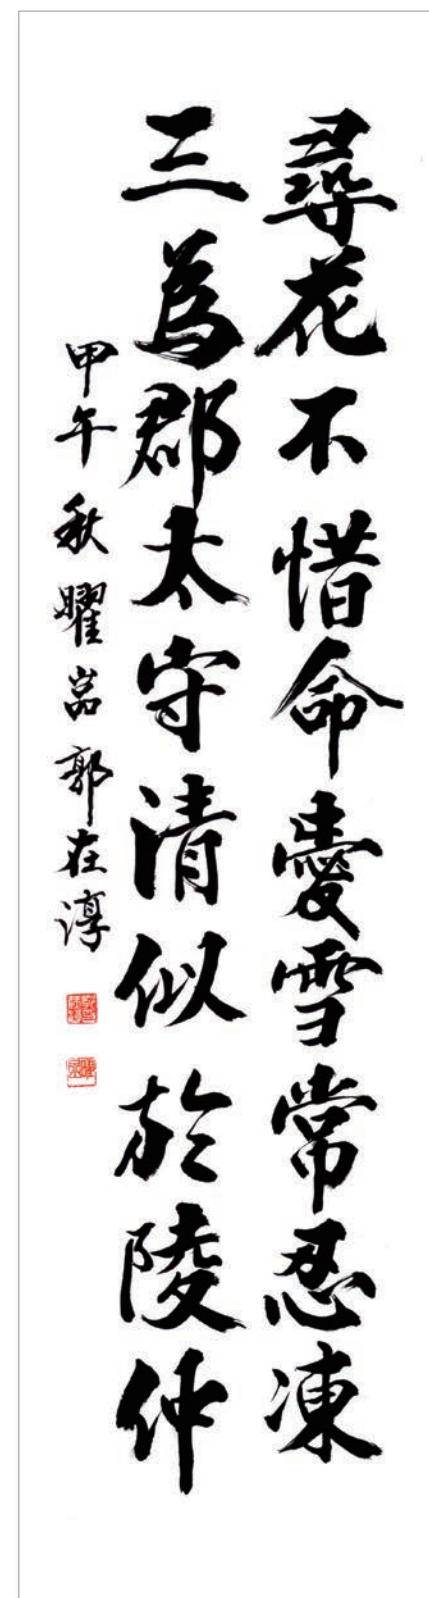 尋花不惜命愛雪常忍凍
三為郡太守清似於陵仲
甲午秋曜嵓郭在淳